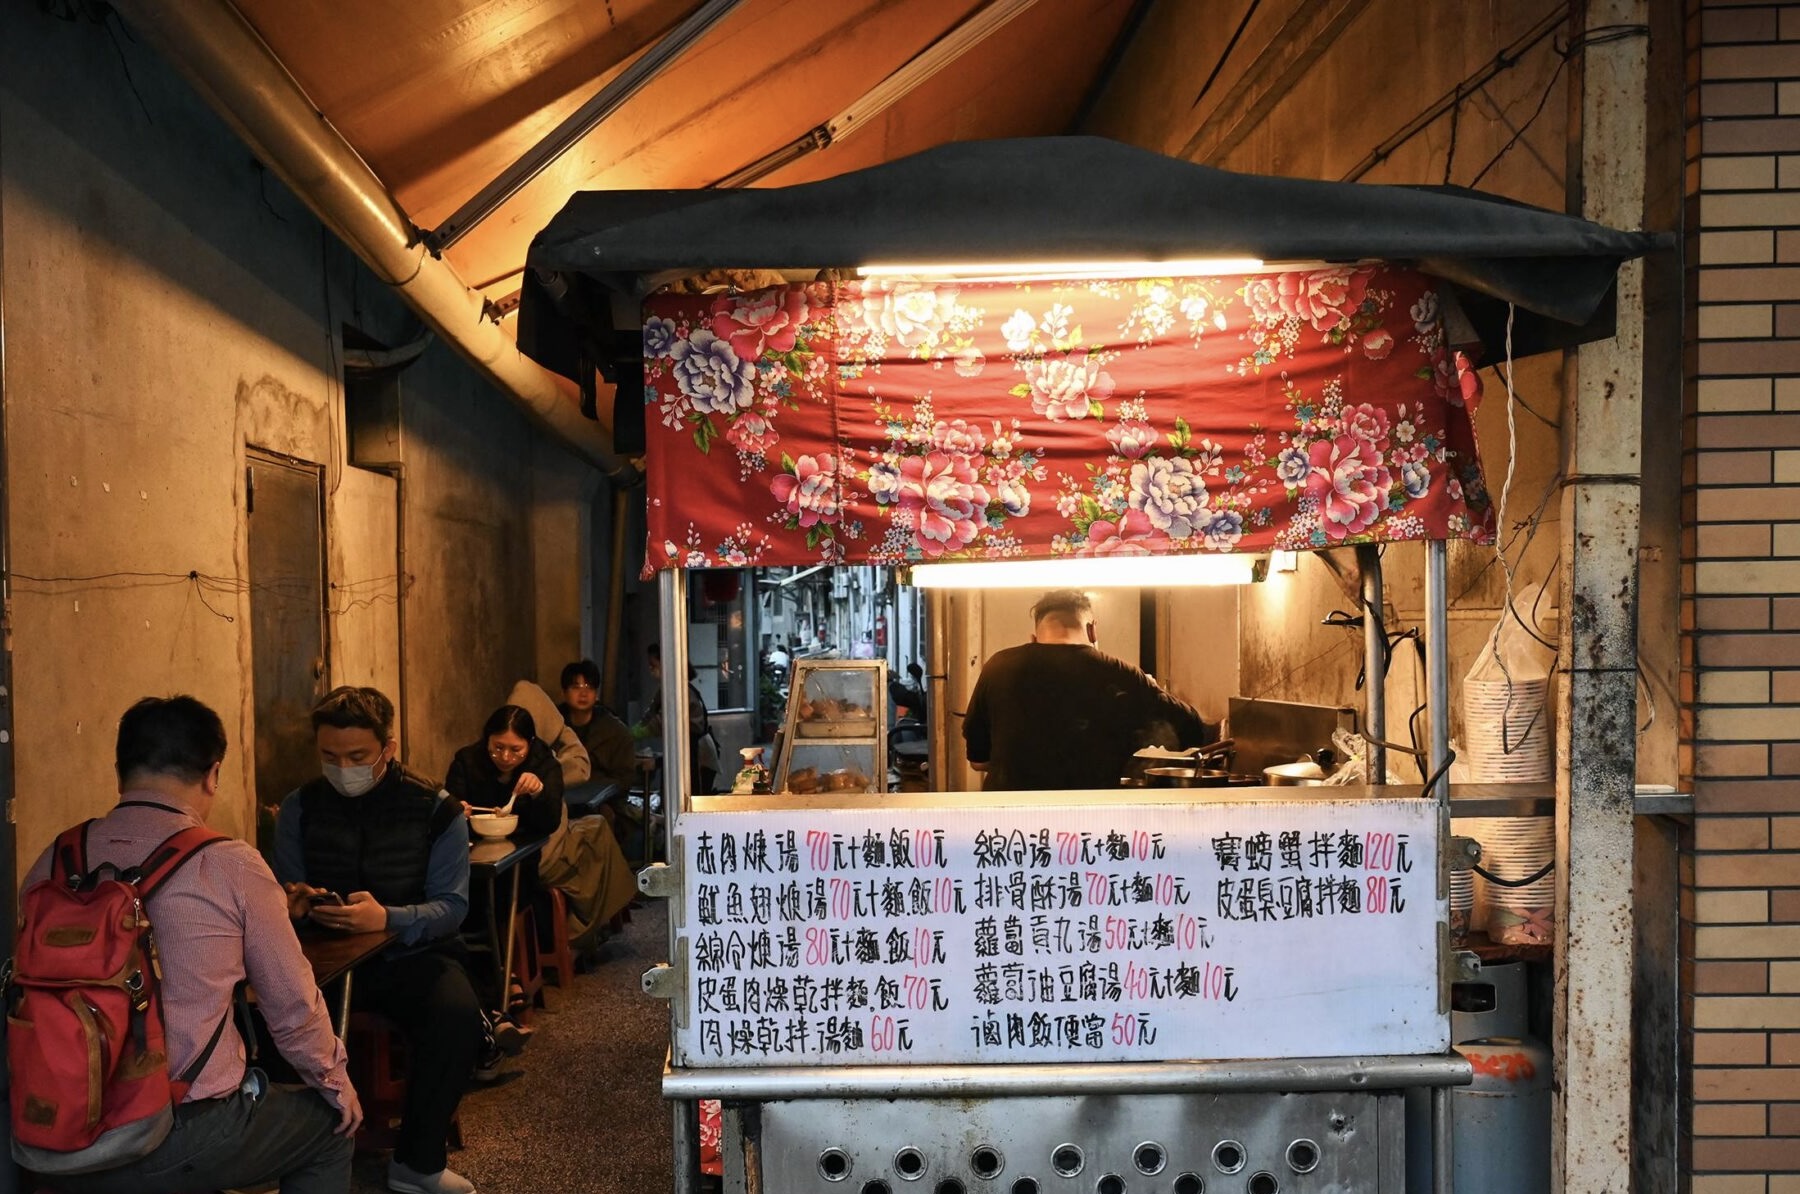 赤肉焿湯70元+麵.飯10元
魷魚翅焿湯70元+麵.飯10元
綜合焿湯80元+麵.飯10元
皮蛋肉燥乾拌麵.飯70元
肉燥乾拌.湯麵60元
綜合湯70元+麵10元
排骨酥湯70元+麵10元
蘿蔔貢丸湯50元+麵10元
蘿蔔油豆腐湯40元+麵10元
滷肉飯便當50元
寶螃蟹拌麵120元
皮蛋臭豆腐拌麵80元